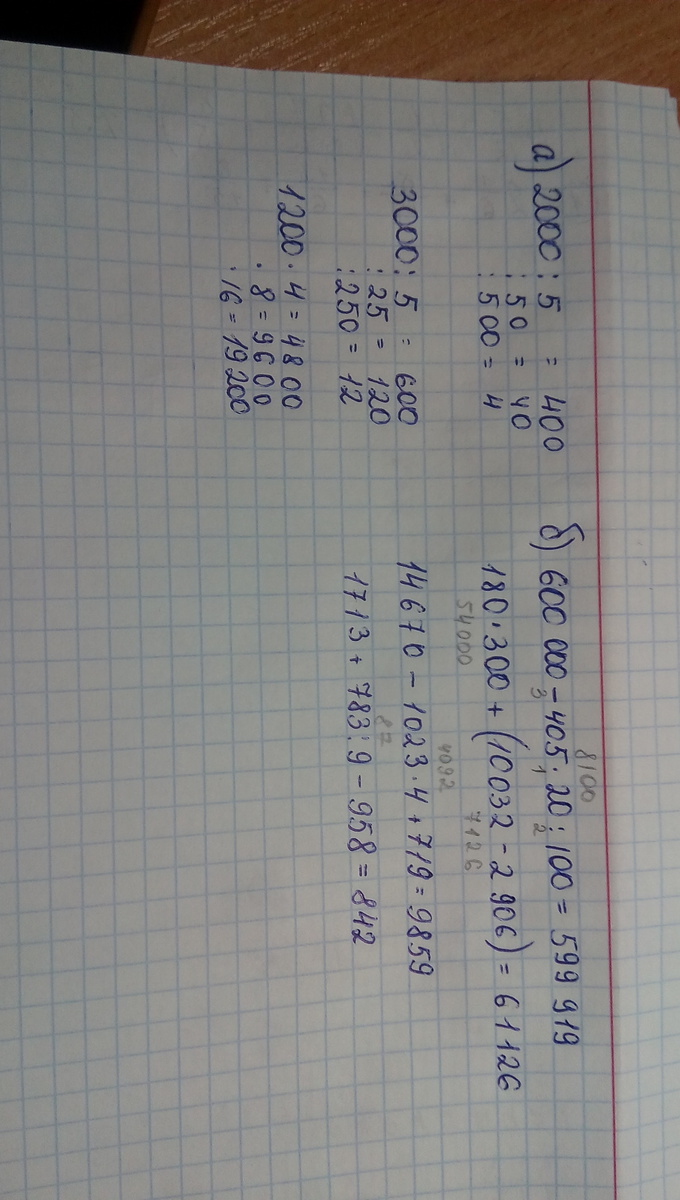 а) 2000 : 5 = 400
: 50 = 40
: 500 = 4
3000 : 5 = 600
: 25 = 120
: 250 = 12
1200 · 4 = 4800
· 8 = 9600
· 16 = 19 200
8100
б) 600 000 - 405 · 20 : 100 = 599 919
3 1 2
180 · 300 + (10032 - 2 906) = 61 126
54000 7126
4092
14 670 - 1023 · 4 + 719 = 9859
87
1713 + 783 : 9 - 958 = 842